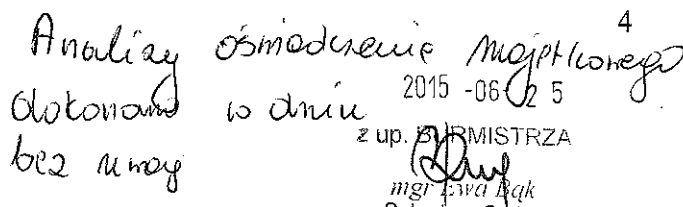 4
Analizy oświadczenia majątkowego
dokonano w dniu 2015 -06- 2 5
bez uwag
z up. BURMISTRZA
mgr Ewa Bąk